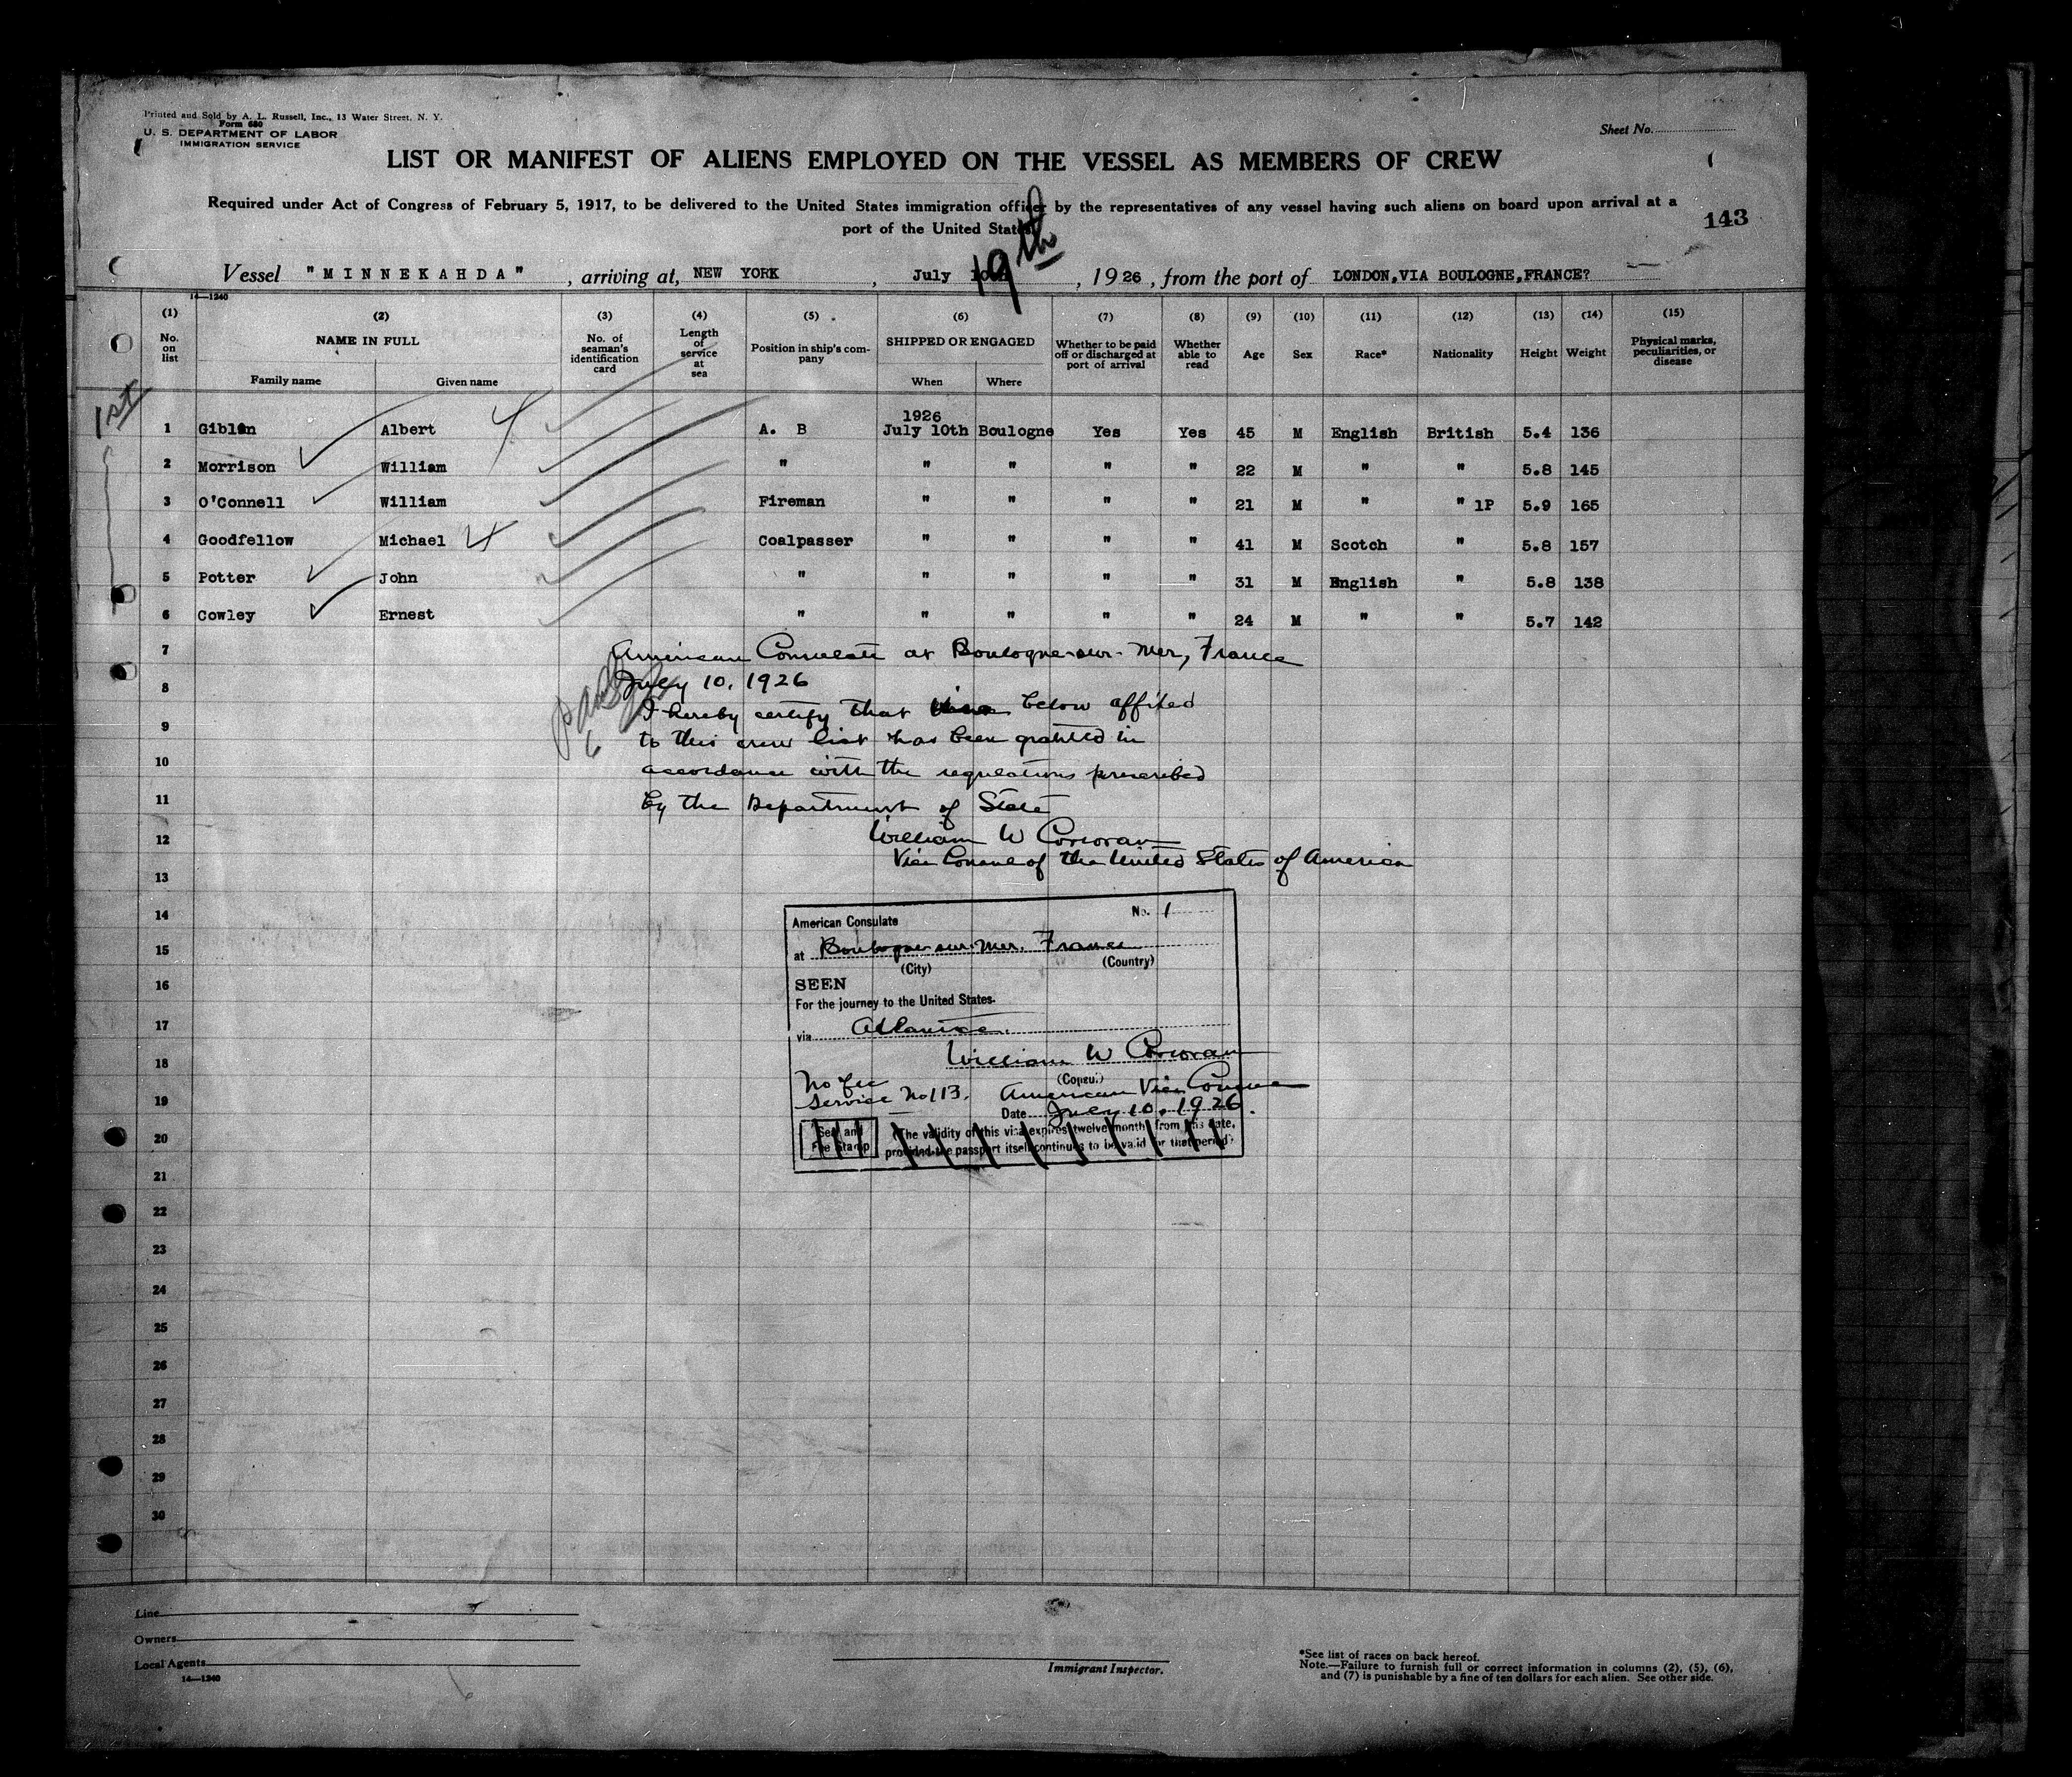 Printed and Sold by A. L. Russell, Inc., 13 Water Street, N. Y.
Form 680
U. S. DEPARTMENT OF LABOR
IMMIGRATION SERVICE
Sheet No.
LIST OR MANIFEST OF ALIENS EMPLOYED ON THE VESSEL AS MEMBERS OF CREW
Required under Act of Congress of February 5, 1917, to be delivered to the United States immigration officer by the representatives of any vessel having such aliens on board upon arrival at a
port of the United States
143
19th
Vessel "MINNEKAHDA", arriving at, NEW YORK, July 10th, 1926, from the port of LONDON,VIA BOULOGNE,FRANCE?
14—1240
(1) (2) (3) (4) (5) (6) (7) (8) (9) (10) (11) (12) (13) (14) (15)
No. on list NAME IN FULL Family name Given name No. of seaman's identification card Length of service at sea Position in ship's company SHIPPED OR ENGAGED When Where Whether to be paid off or discharged at port of arrival Whether able to read Age Sex Race* Nationality Height Weight Physical marks, peculiarities, or disease
1st
1926
1 Giblin Albert 4 A. B July 10th Boulogne Yes Yes 45 M English British 5.4 136
2 Morrison William " " " " " 22 M " " 5.8 145
3 O'Connell William Fireman " " " " 21 M " " 1P 5.9 165
4 Goodfellow Michael 4 Coalpasser " " " " 41 M Scotch " 5.8 157
5 Potter John " " " " " 31 M English " 5.8 138
6 Cowley Ernest " " " " " 24 M " " 5.7 142
7 American Consulate at Boulogne-sur-Mer, France
8 July 10, 1926
9 I hereby certify that visa below affixed
to this crew list has been granted in
10 accordance with the regulations prescribed
11 by the Department of State
12 William W Corcoran
Vice Consul of the United States of America
13
6
14 American Consulate No. 1
15 at Boulogne-sur-Mer, France
(City) (Country)
16 SEEN
For the journey to the United States.
17 via Atlantic.
18 William W Corcoran
(Consul)
No fee
19 Service No 113. American Vice Consul
Date July 10, 1926.
20 Seal and Fee Stamp
The validity of this visa expires twelve month from this date,
provided the passport itself continues to be valid for that period.
21
22
23
24
25
26
27
28
29
30
Line
Owners
Local Agents
14—1240
Immigrant Inspector.
*See list of races on back hereof.
Note.—Failure to furnish full or correct information in columns (2), (5), (6),
and (7) is punishable by a fine of ten dollars for each alien. See other side.